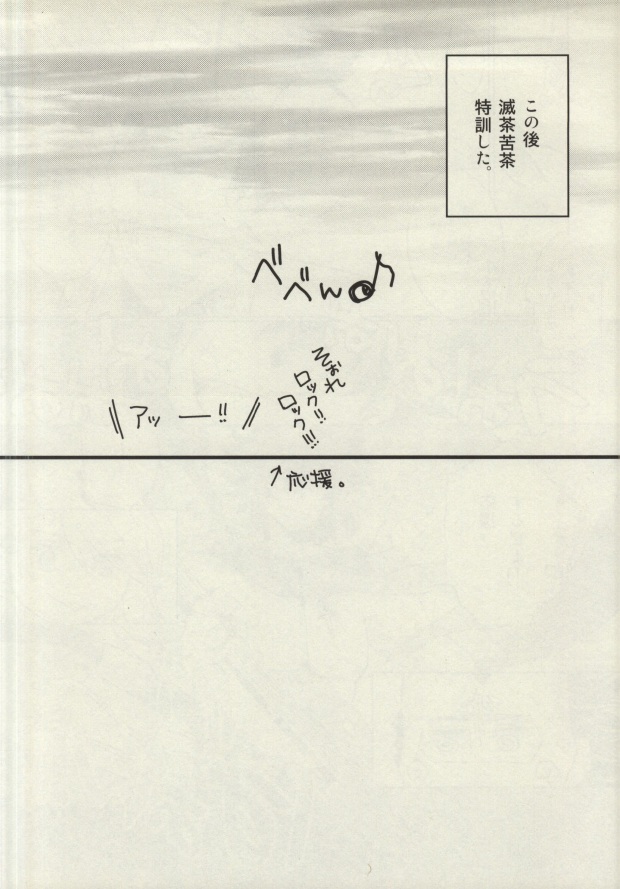 この後
滅茶苦茶
特訓した。
べべん♪
そぉれ
ロック!!
ロック!!!
アッーー!!
↗応援。